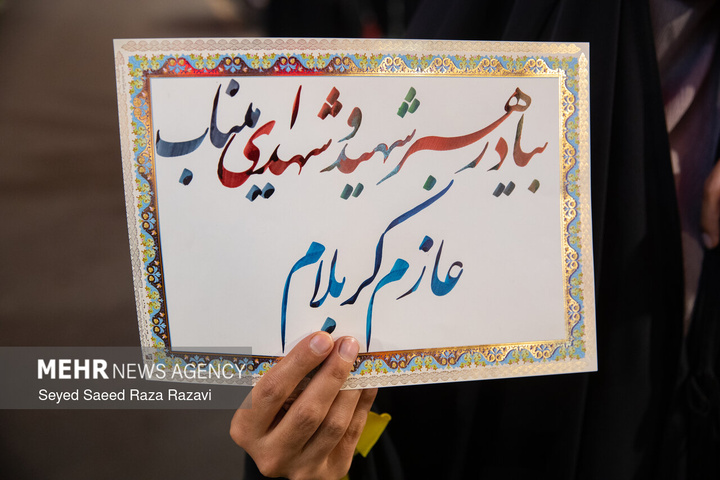 بیاد رهبر شهید و شهدای میناب
عازم کربلام
MEHR NEWS AGENCY
Seyed Saeed Raza Razavi